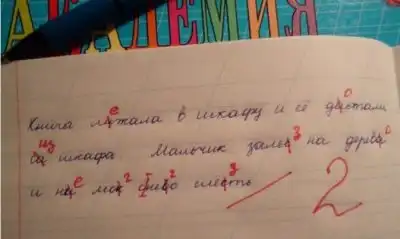 АКАДЕМИЯ
Книга лежала в шкафу и её достали
из шкафа Мальчик залез на дерево
и не мог I от него слезть
2